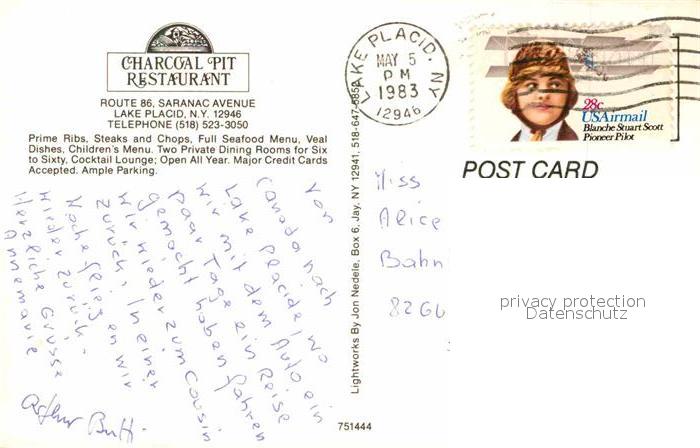 CHARCOAL PIT
RESTAURANT
ROUTE 86, SARANAC AVENUE
LAKE PLACID, N.Y. 12946
TELEPHONE (518) 523-3050
Prime Ribs, Steaks and Chops, Full Seafood Menu, Veal
Dishes, Children's Menu. Two Private Dining Rooms for Six
to Sixty, Cocktail Lounge; Open All Year. Major Credit Cards
Accepted. Ample Parking.
Von
Canada nach
Lake Placide, wo
wir mit dem Auto ein
paar Tage ein Reise
gemacht haben fahren
wir wieder zum Cousin
zurück, In einer
Woche fliegen wir
wieder zurück.
Herzliche Grüsse
Annemarie
Arthur
Lightworks By Jon Nedele, Box 6, Jay, NY 12941, 518-647-
751444
LAKE PLACID, NY
MAY 5
PM
1983
12946
28c
USAirmail
Blanche Stuart Scott
Pioneer Pilot
POST CARD
Miss
Alice
Bahn
826
privacy protection
Datenschutz